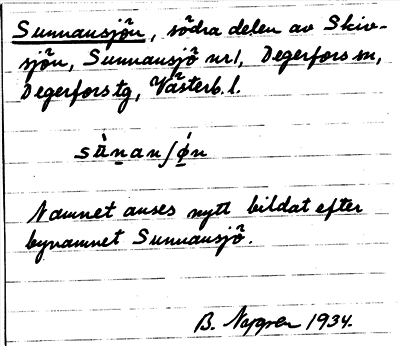 Sunnansjön, södra delen av Skiv-
sjön, Sunnansjö nr 1, Degerfors sn,
Degerfors tg, Västerb. l.
Namnet anses nytt bildat efter
bynamnet Sunnansjö.
B. Nygren 1934.